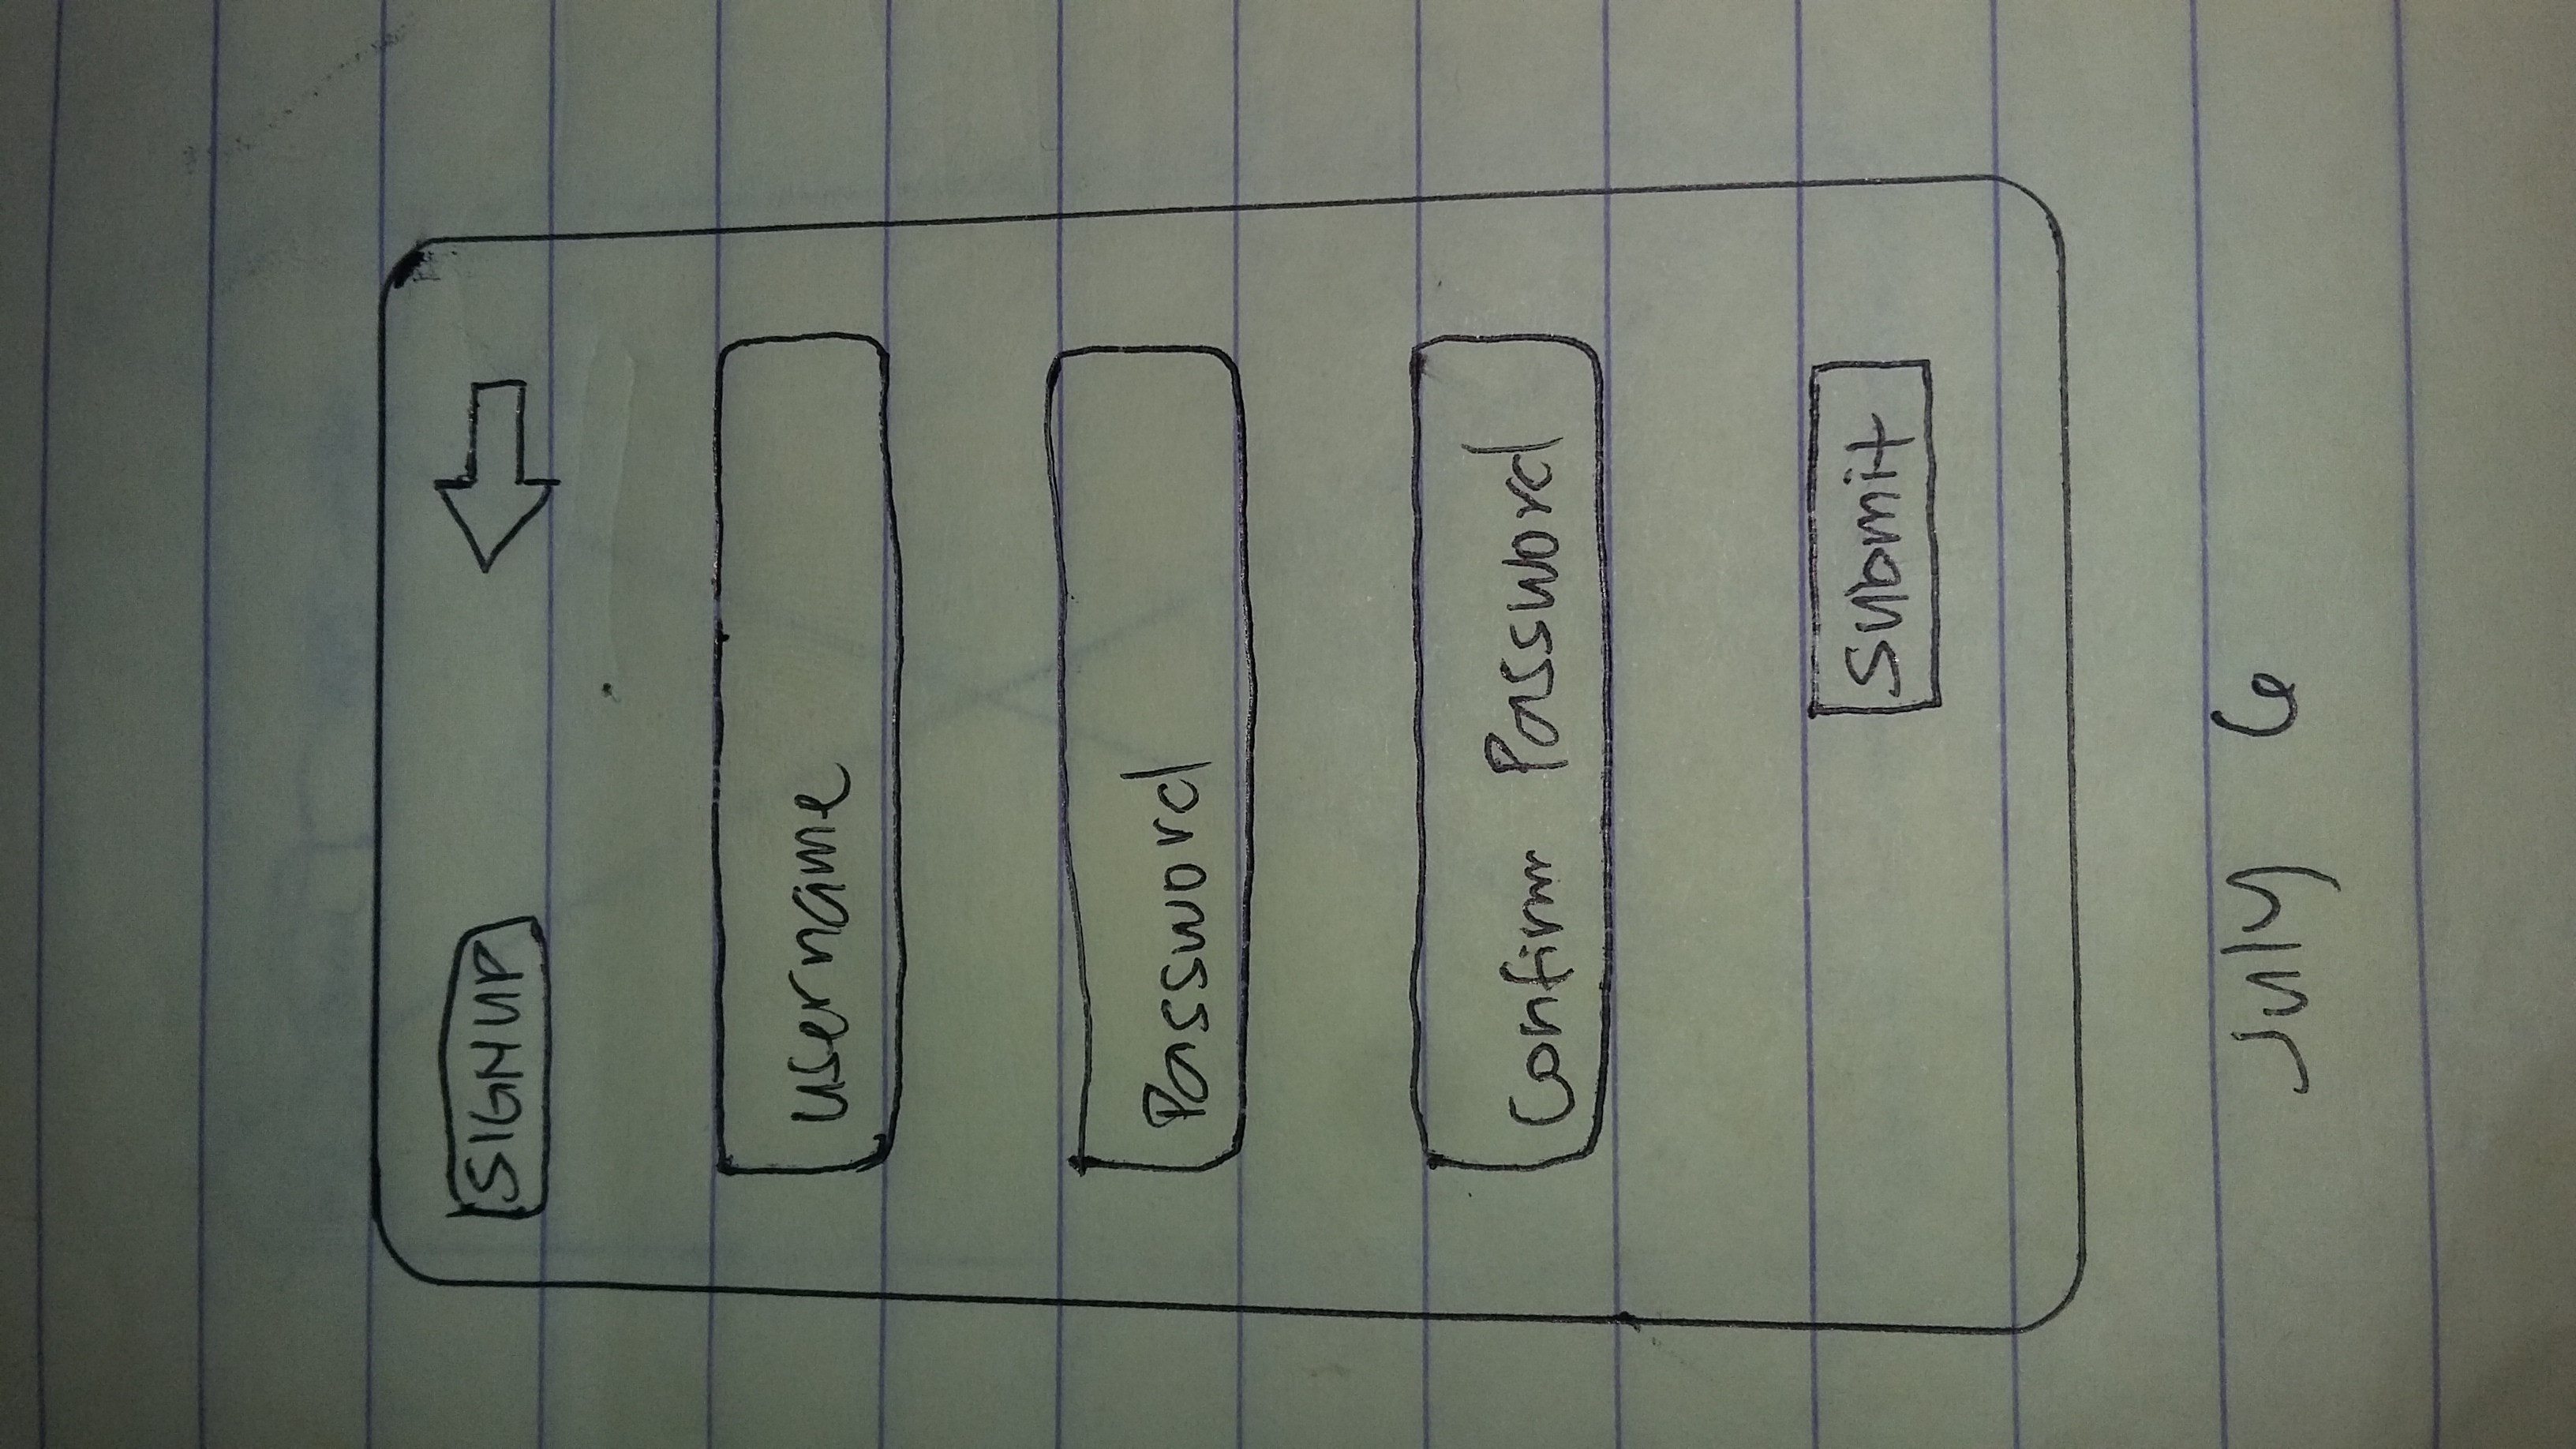 SIGNUP
username
Password
Confirm Password
Submit
July 6